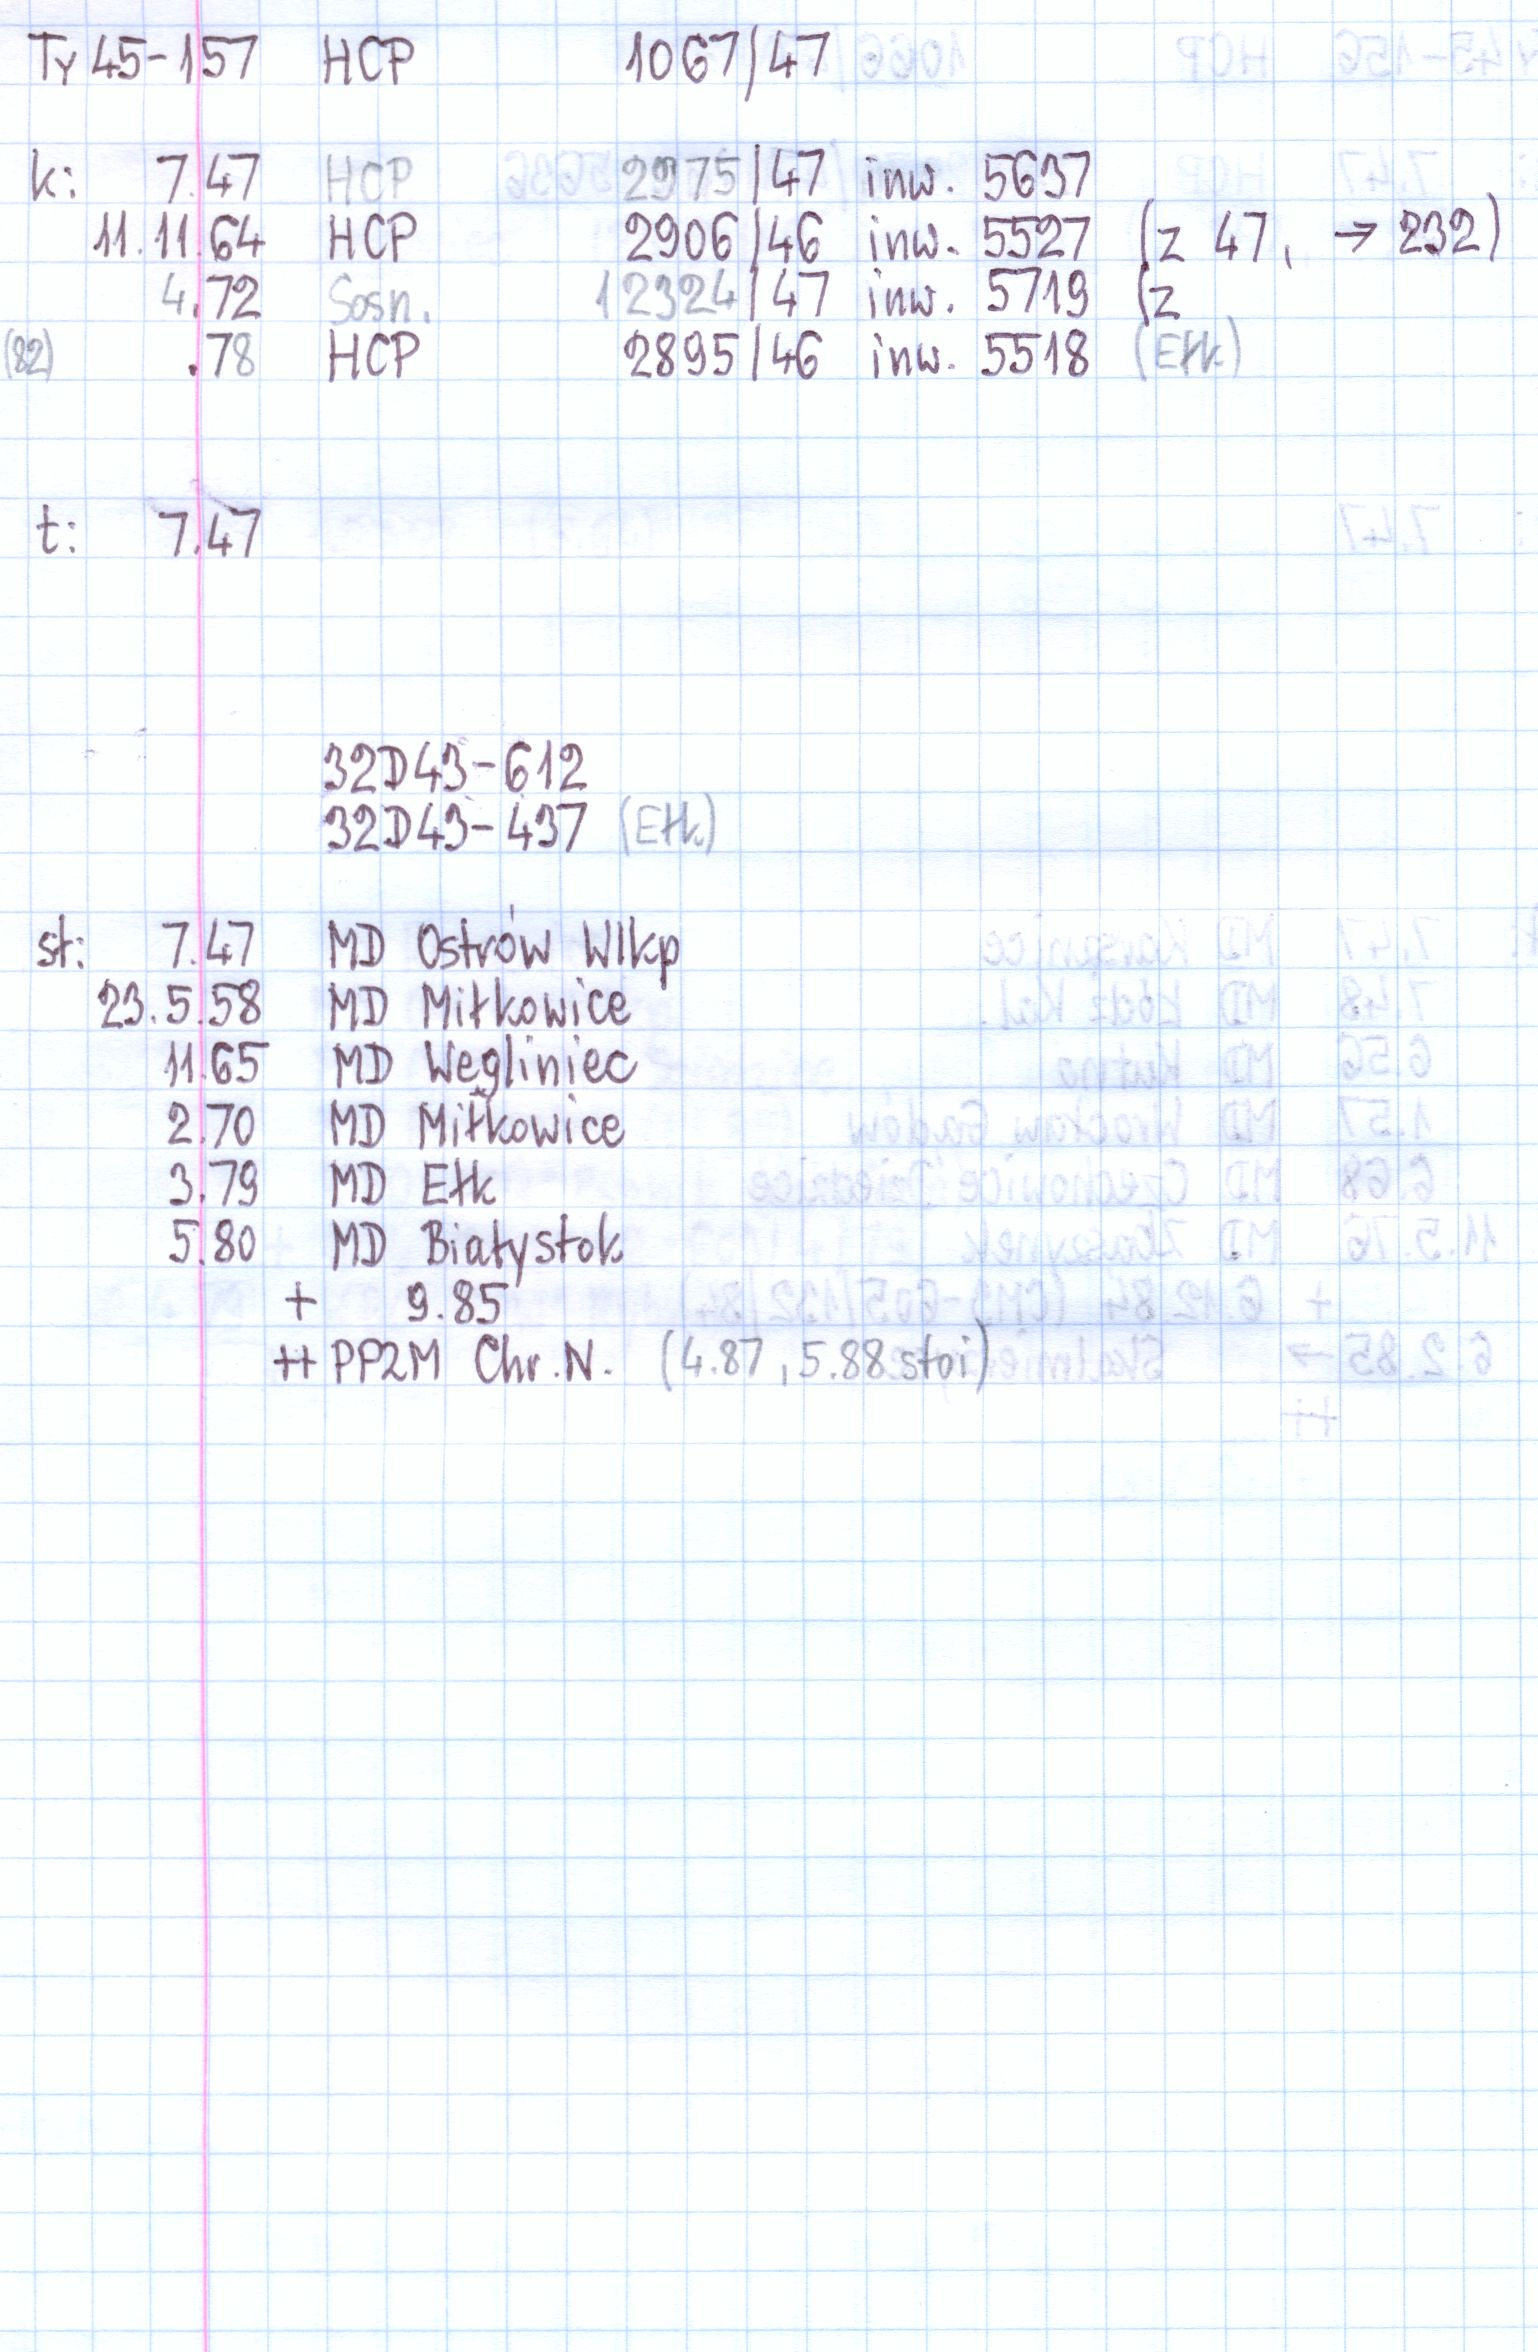 Ty 45-157 HCP 1067/47
k: 7.47 HCP 2975/47 inw. 5637
11.11.64 HCP 2906/46 inw. 5527 (z 47, → 232)
4.72 Sosn. 12324/47 inw. 5719 (z
(82) .78 HCP 2895/46 inw. 5518 (Ełk)
t: 7.47
32D43-612
32D43-437 (Ełk)
st: 7.47 MD Ostrów Wlkp
23.5.58 MD Miłkowice
11.65 MD Węgliniec
2.70 MD Miłkowice
3.79 MD Ełk
5.80 MD Białystok
+ 9.85
++ PP2M Chr. N. (4.87, 5.88 stoi)